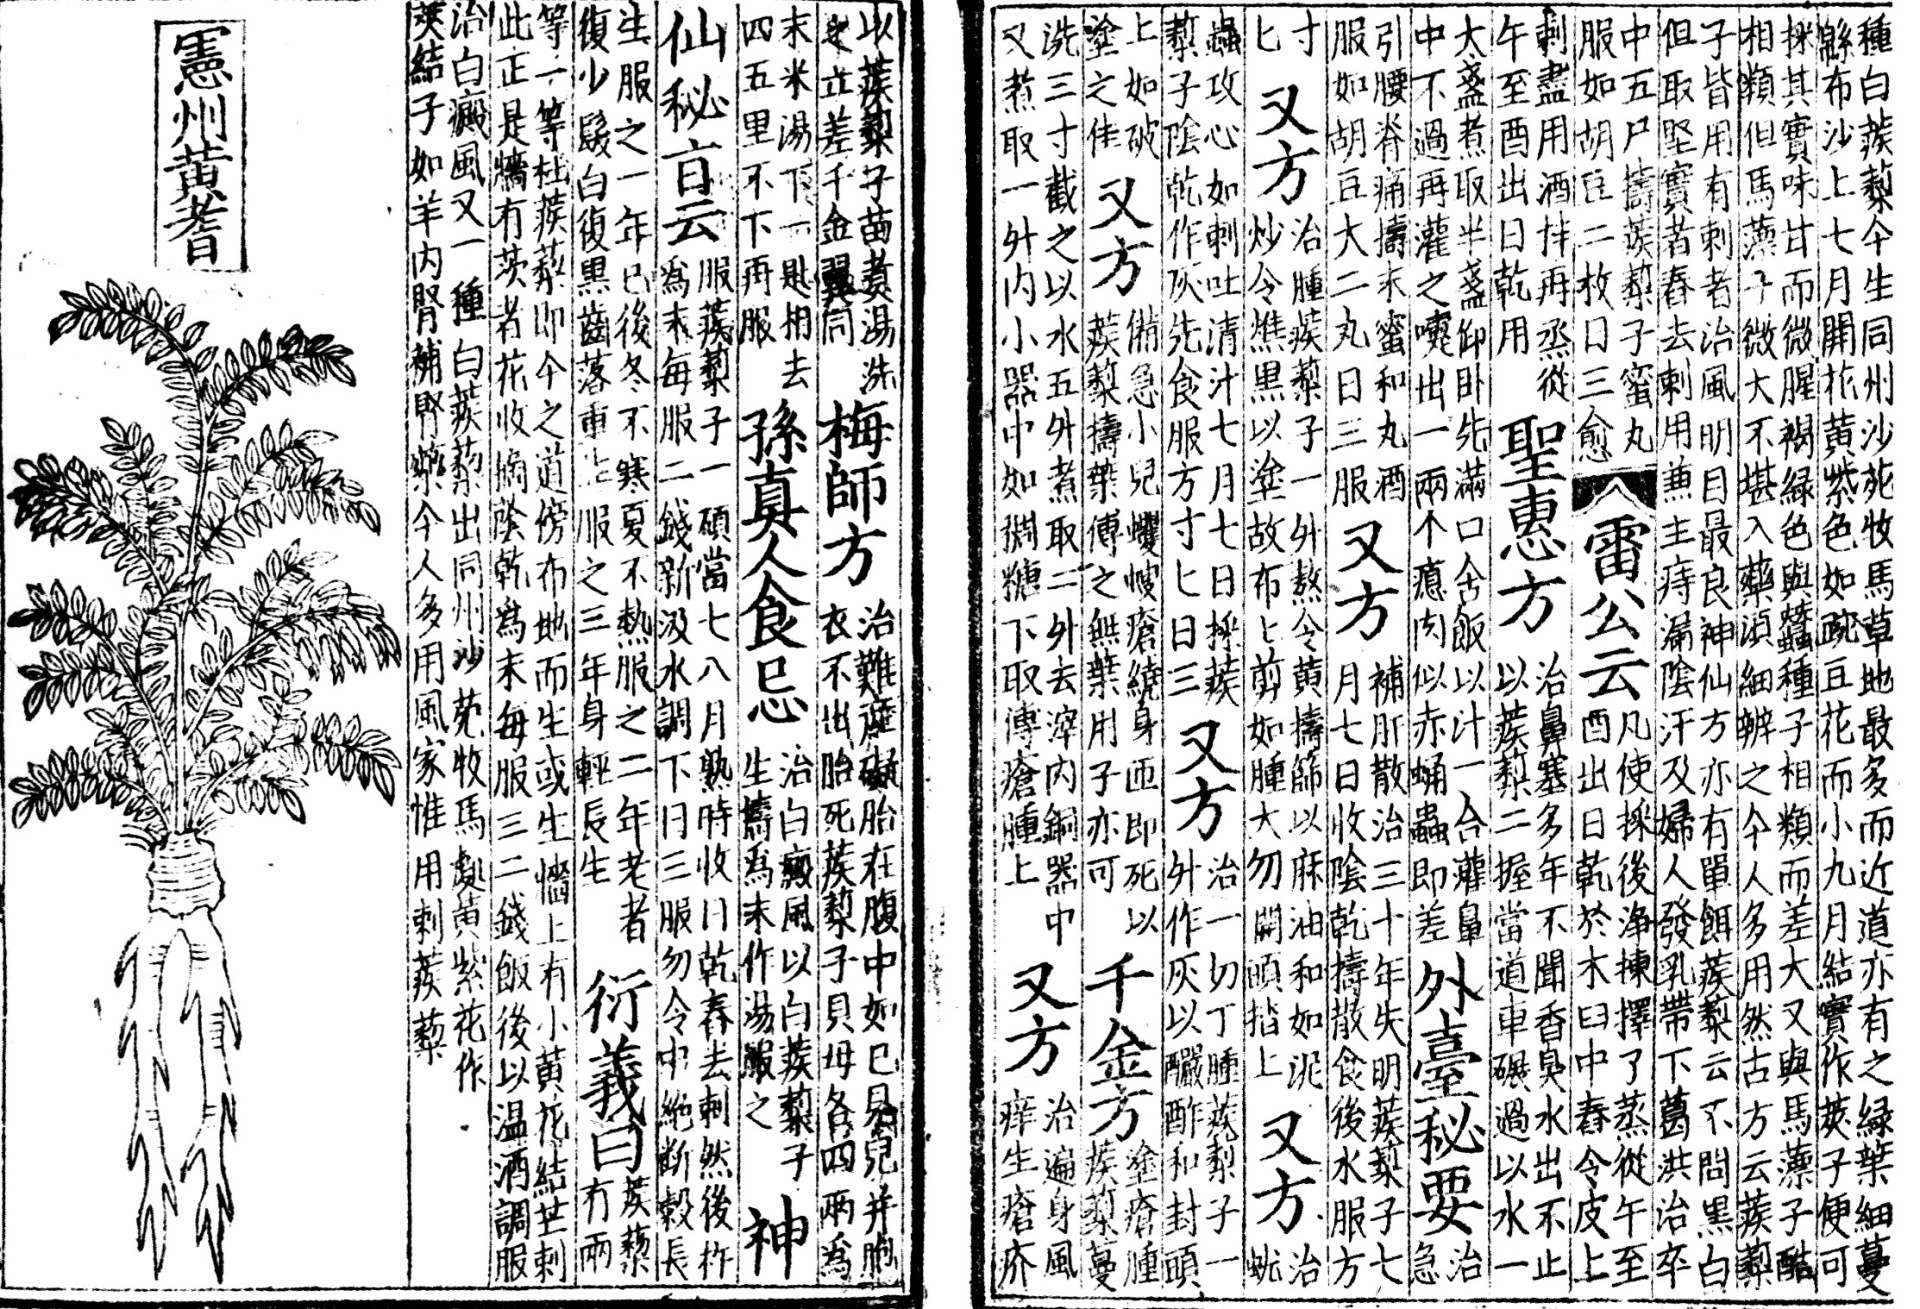 種白蒺藜今生同州沙苑牧馬草地最多而近道亦有之綠葉細蔓
緜布沙上七月開花黃紫色如豌豆花而小九月結實作莢子便可
採其實味甘而微腥褐綠色與蠶種子相類而差大又與馬薸子酷
相類但馬薸子微大不堪入藥須細辨之今人多用然古方云蒺藜
子皆用有刺者治風明目最良神仙方亦有單餌蒺藜云不問黑白
但取堅實者舂去刺用兼主痔漏陰汗及婦人發乳帶下葛洪治卒
中五尸擣蒺藜子蜜丸
服如胡豆二枚日三愈
雷公云
凡使採後淨揀擇了蒸從午至
酉出日乾於木臼中舂令皮上
刺盡用酒拌再蒸從
午至酉出日乾用
聖惠方
治鼻塞多年不聞香臭水出不止
以蒺藜二握當道車碾過以水一
大盞煮取半盞仰臥先滿口含飯以汁一合灌鼻
中不過再灌之嚏出一兩个瘜肉似赤蛹蟲即差
外臺秘要
治
急
引腰脊痛擣末蜜和丸酒
服如胡豆大二丸日三服
又方
補肝散治三十年失明蒺藜子七
月七日收陰乾擣散食後水服方
寸
匕
又方
治腫蒺藜子一升熬令黃擣篩以麻油和如泥
炒令燋黑以塗故布上剪如腫大勿開頭搨上
又方
治
蚘
蟲攻心如刺吐清汁七月七日採蒺
藜子陰乾作灰先食服方寸匕日三
又方
治一切丁腫蒺藜子一
升作灰以釅酢和封頭
上如破
塗之佳
又方
備急小兒蠼螋瘡繞身匝即死以
蒺藜擣葉傅之無葉用子亦可
千金方
塗瘡腫
蒺藜蔓
洗三寸截之以水五升煮取二升去滓內銅器中
又煮取一升內小器中如稠糖下取傅瘡腫上
又方
治遍身風
痒生瘡疥
以蒺藜子苗煮湯洗
之立差千金翼同
梅師方
治難產礙胎在腹中如已見兒并胞
衣不出胎死蒺藜子貝母各四兩為
末米湯下一匙相去
四五里不下再服
孫真人食忌
治白癜風以白蒺藜子
生擣為末作湯服之
神
仙秘旨云
服蒺藜子一碩當七八月熟時收日乾舂去刺然後杵
為末每服二錢新汲水調下日三服勿令中絕斷穀長
生服之一年已後冬不寒夏不熱服之二年老者
復少髮白復黑齒落重生服之三年身輕長生
衍義曰
蒺藜
有兩
等一等杜蒺藜即今之道傍布地而生或生牆上有小黃花結芒刺
此正是牆有茨者花收摘陰乾為末每服三二錢飯後以溫酒調服
治白癜風又一種白蒺藜出同州沙苑牧馬處黃紫花作
莢結子如羊內腎補腎藥今人多用風家惟用刺蒺藜
憲州黃耆